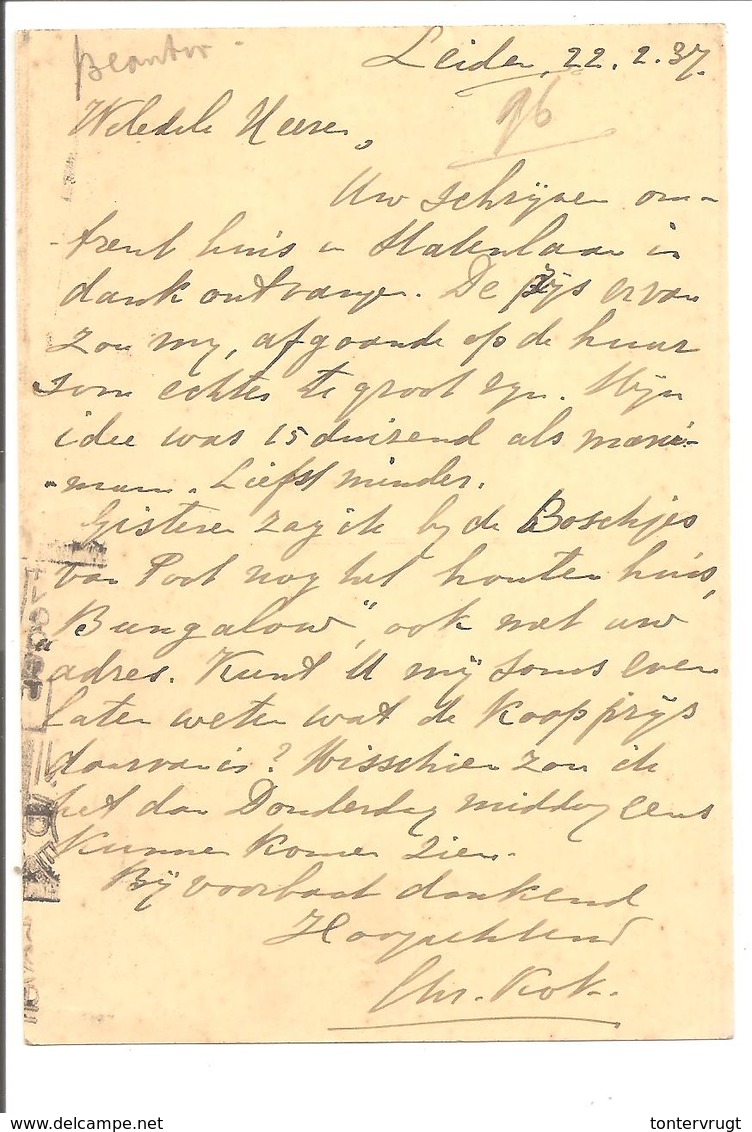 Beantw -
Leiden, 22.2.37.
96
Weledele Heeren,
Uw schrijven om-
-trent huis in Statenlaan in
dank ontvangen. De prijs ervan
zou mij, afgaande op de huur
som echter te groot zijn. Mijn
idee was 15 duizend als maxi-
-mum. Liefst minder.
Gisteren zag ik bij de Boschjes
van Poot nog het houten huis,
"Bungalow", ook met uw
adres. Kunt U mij soms even
laten weten wat de koopprijs
daarvan is? Misschien zou ik
het dan Donderdag middag eens
kunnen komen zien.
Bij voorbaat dankend
Hoogachtend
Chr. Kok.
delcampe.net
tontervrugt